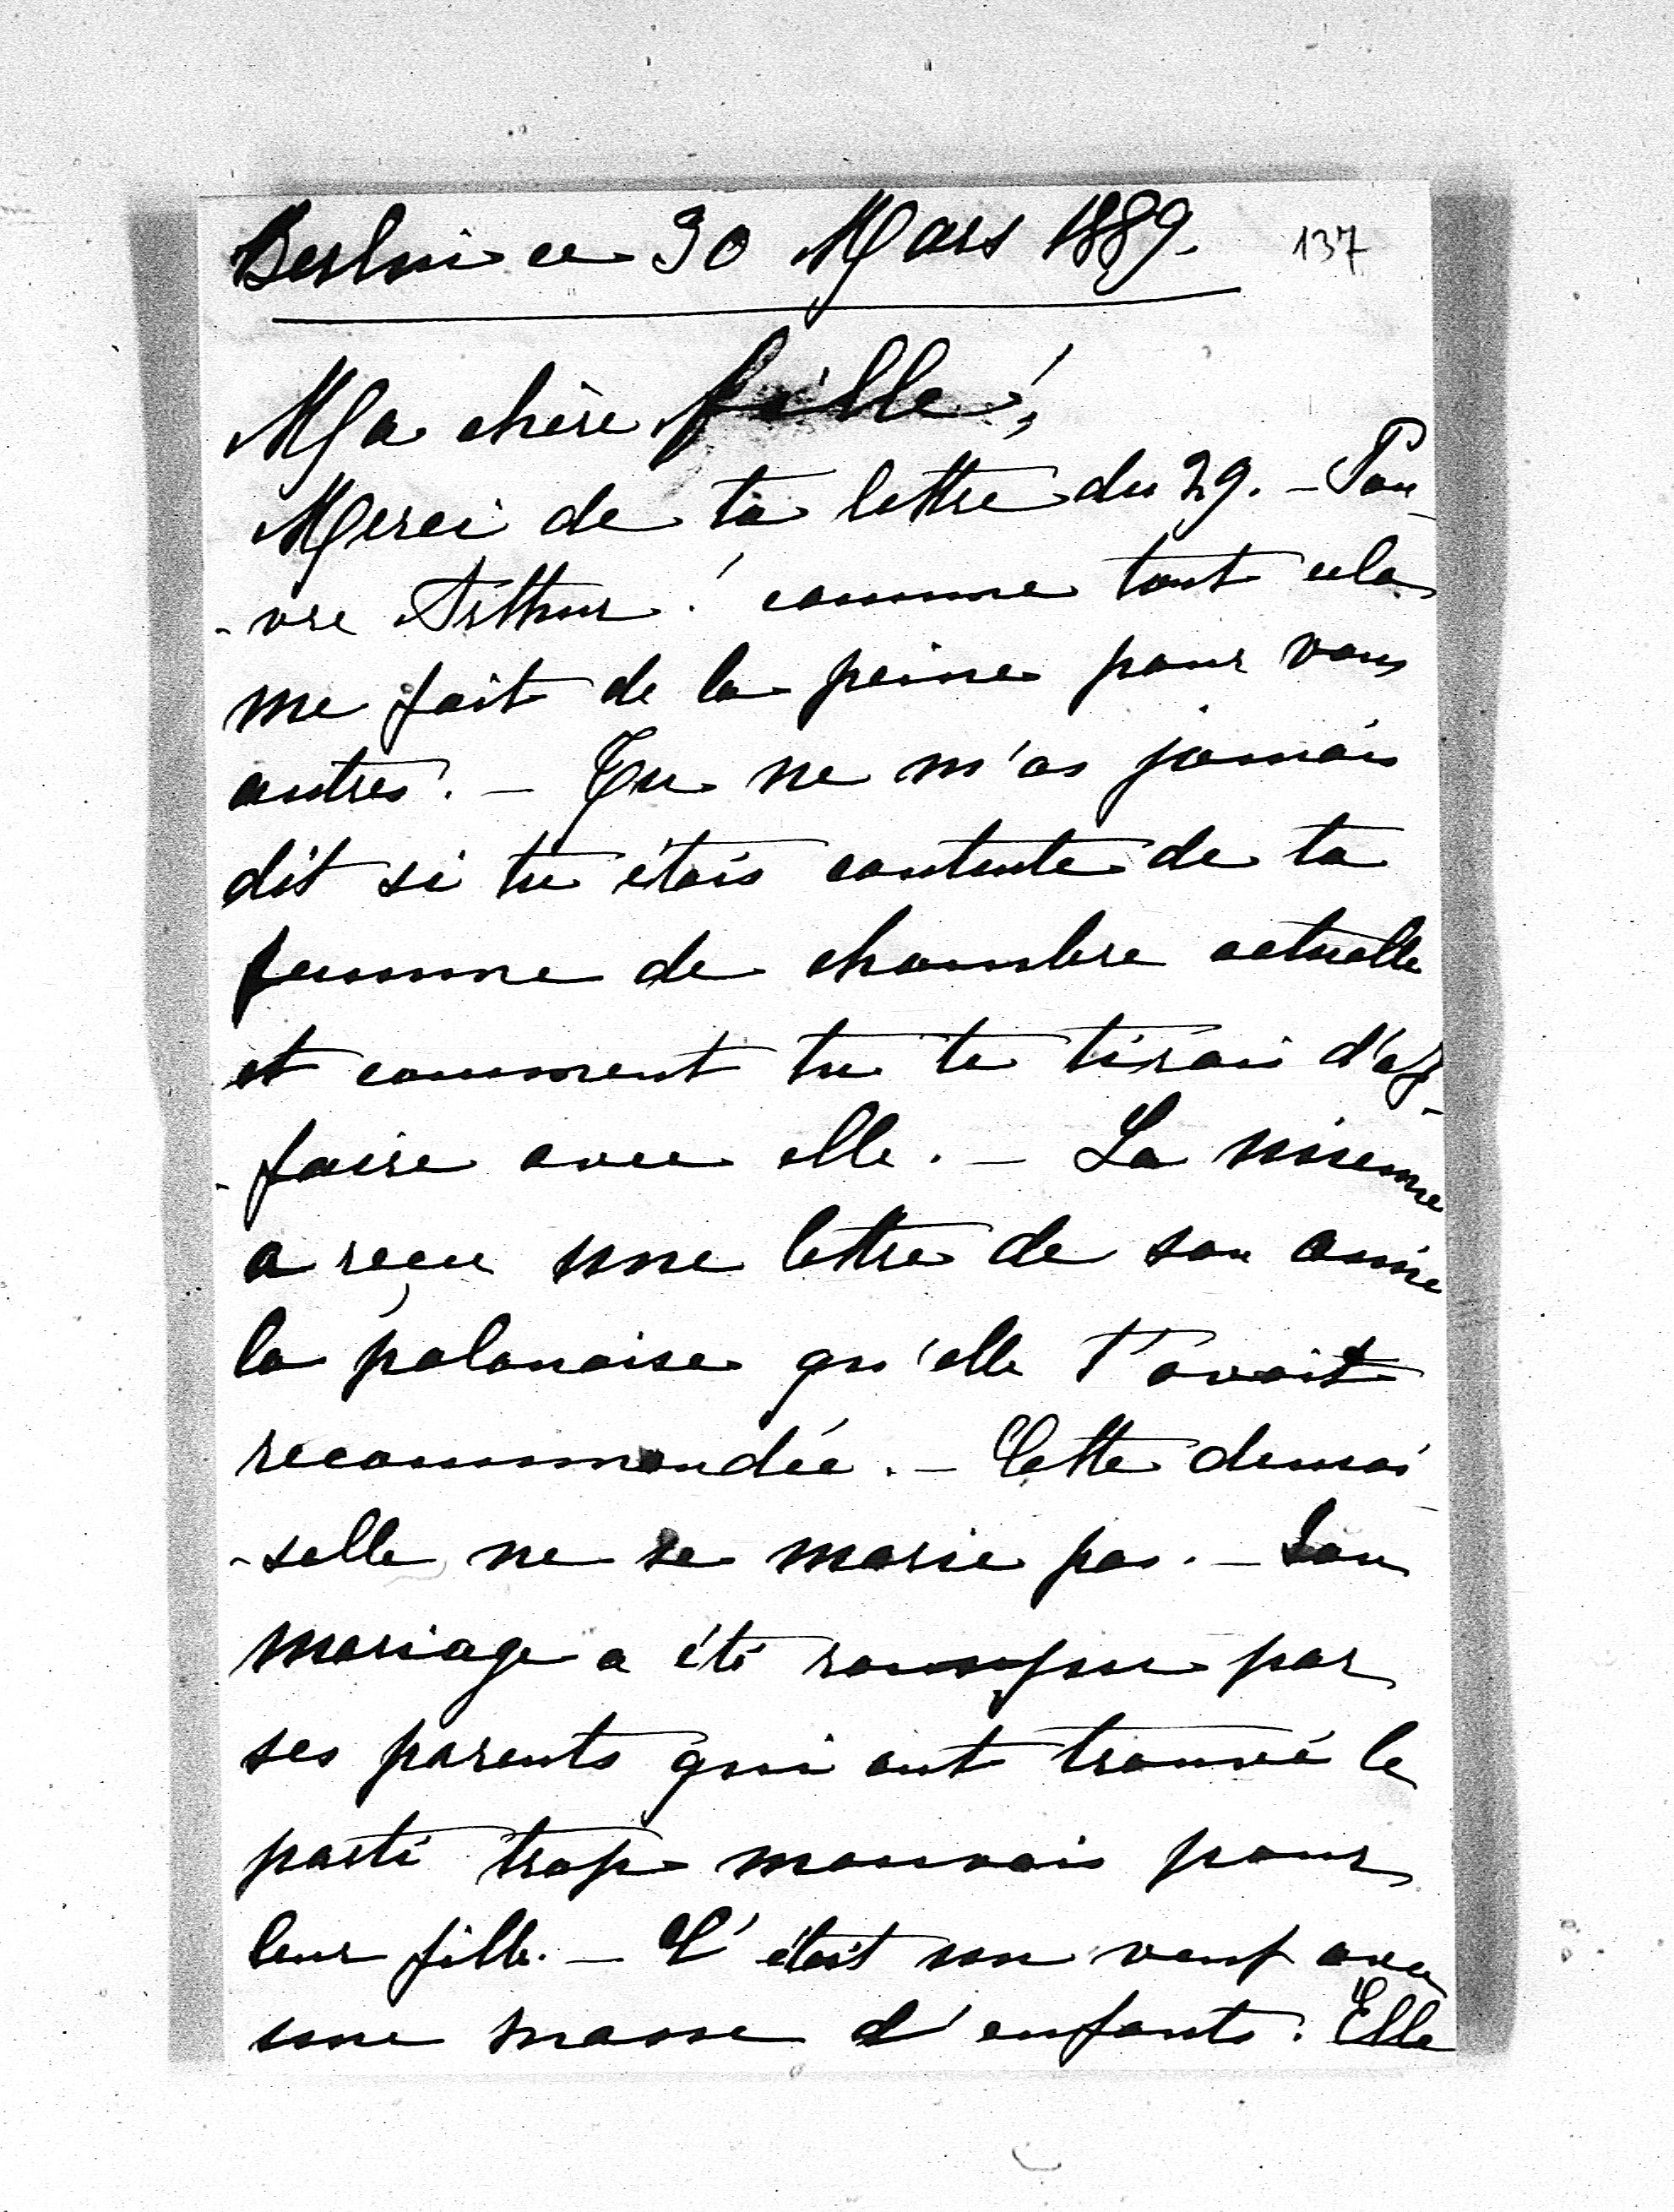 Berlin ce 30 Mars 1889.
137
Ma chère fille!,
Merci de ta lettre du 29. – Pau-
-vre Arthur! comme tout cela
me fait de la peine pour vous
autres. – Tu ne m'as jamais
dit si tu étais contente de ta
femme de chambre actuelle
et comment tu te tirais d'af-
-faire avec elle. – La mienne
a reçu une lettre de son amie
la polonaise qu'elle t'avait
recommandée. – Cette demoi-
-selle ne se marie pas. – Son
mariage a été rompu par
ses parents qui ont trouvé le
parti trop mauvais pour
leur fille. – C'était un veuf avec
une masse d'enfants. Elle